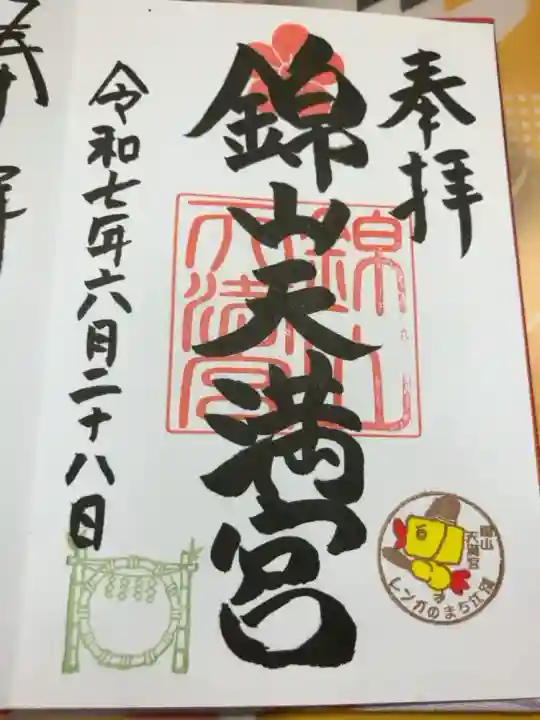 奉拝
錦山天満宮
錦山天満宮
令和七年六月二十八日
錦山
天満宮
レンガのまち江別